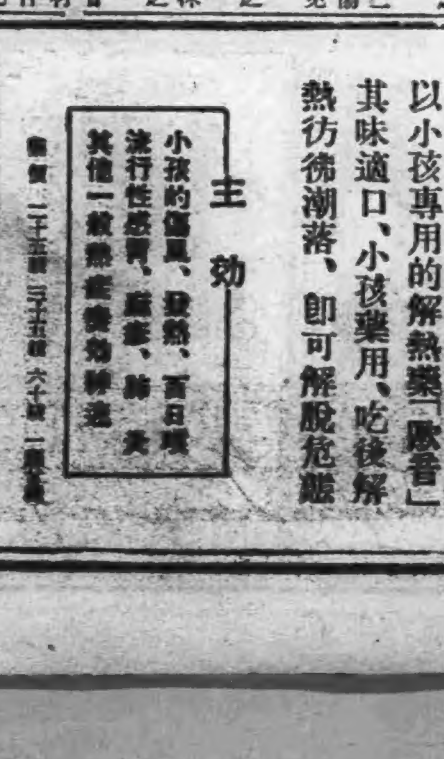 以小孩專用的解熱藥「歐君」
其味適口、小孩樂用、吃後解
熱彷彿潮落、卽可解脫危態
主効
小孩的傷風、發熱、百日咳
流行性感冒、麻疹、肺炎
其他一般熱症奏効神速
二十五錢 三十五錢 六十錢 一圓